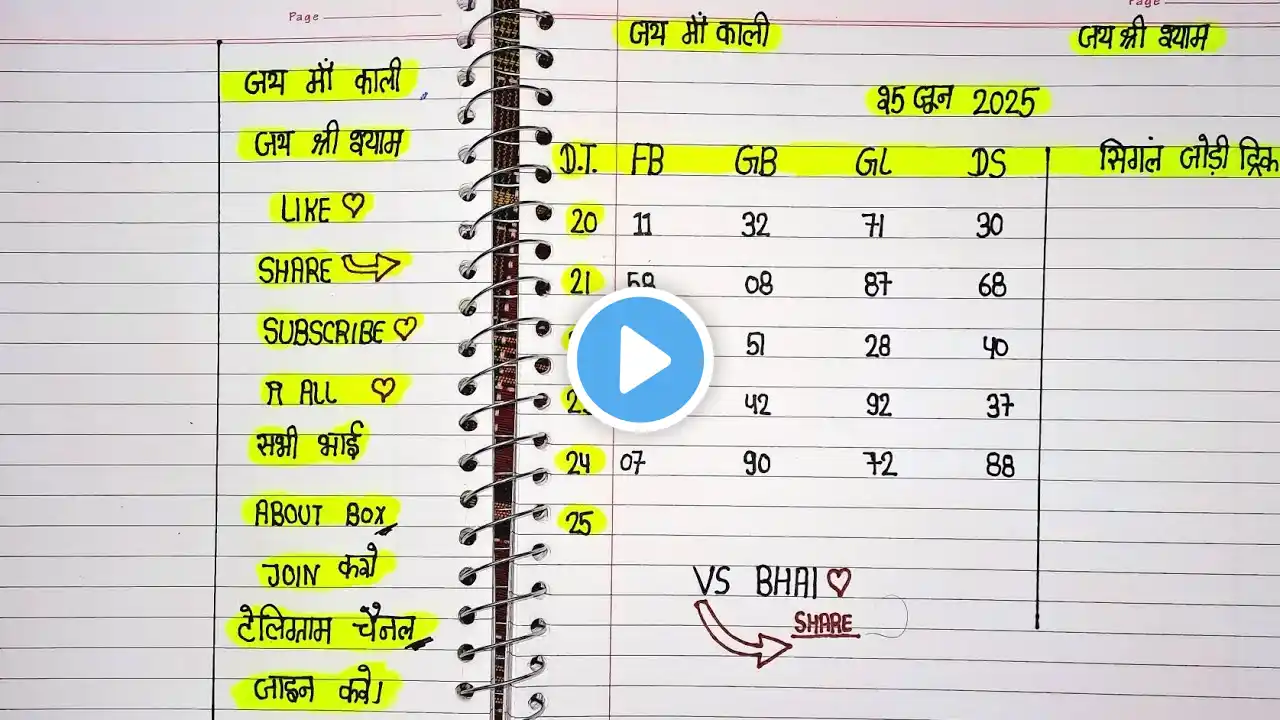 Page
जय माँ काली
जय श्री श्याम
LIKE ♡
SHARE
SUBSCRIBE ♡
R ALL ♡
सभी भाई
ABOUT BOX
JOIN करो
टेलिग्राम चैनल
जाइन करे।
Page
जय माँ काली जय श्री श्याम
25 जून 2025
D.T. FB GB GL DS सिगंल जोड़ी ट्रिक
20 11 32 71 30
21 58 08 87 68
51 28 40
42 92 37
24 07 90 72 88
25
VS BHAI ♡
SHARE